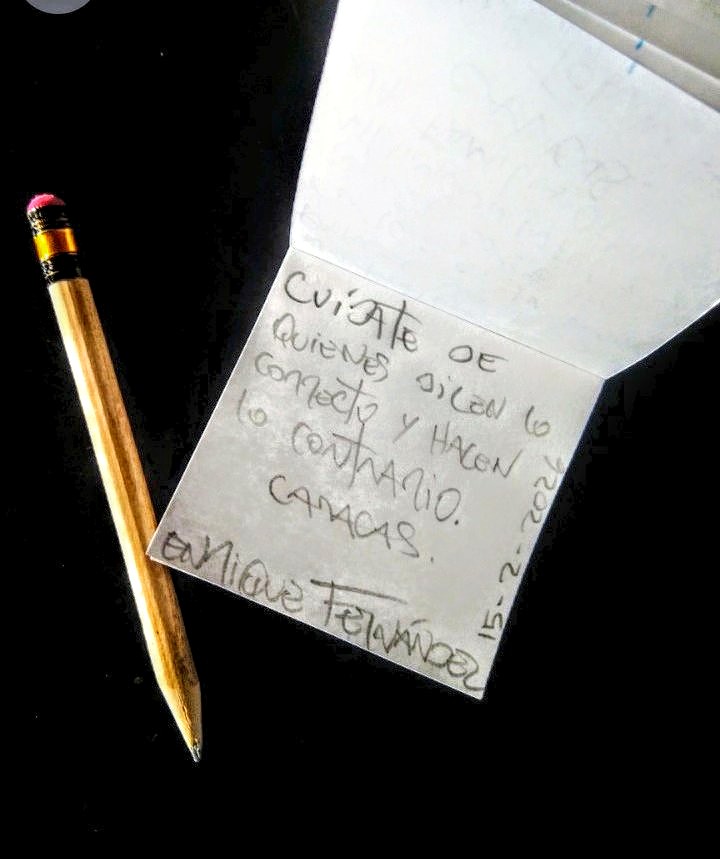 CUÍDATE DE
QUIENES DICEN lo
CORRECTO Y HACEN
lo CONTRARIO.
CARACAS.
ENRIQUE FERNÁNDEZ
15-2-2026